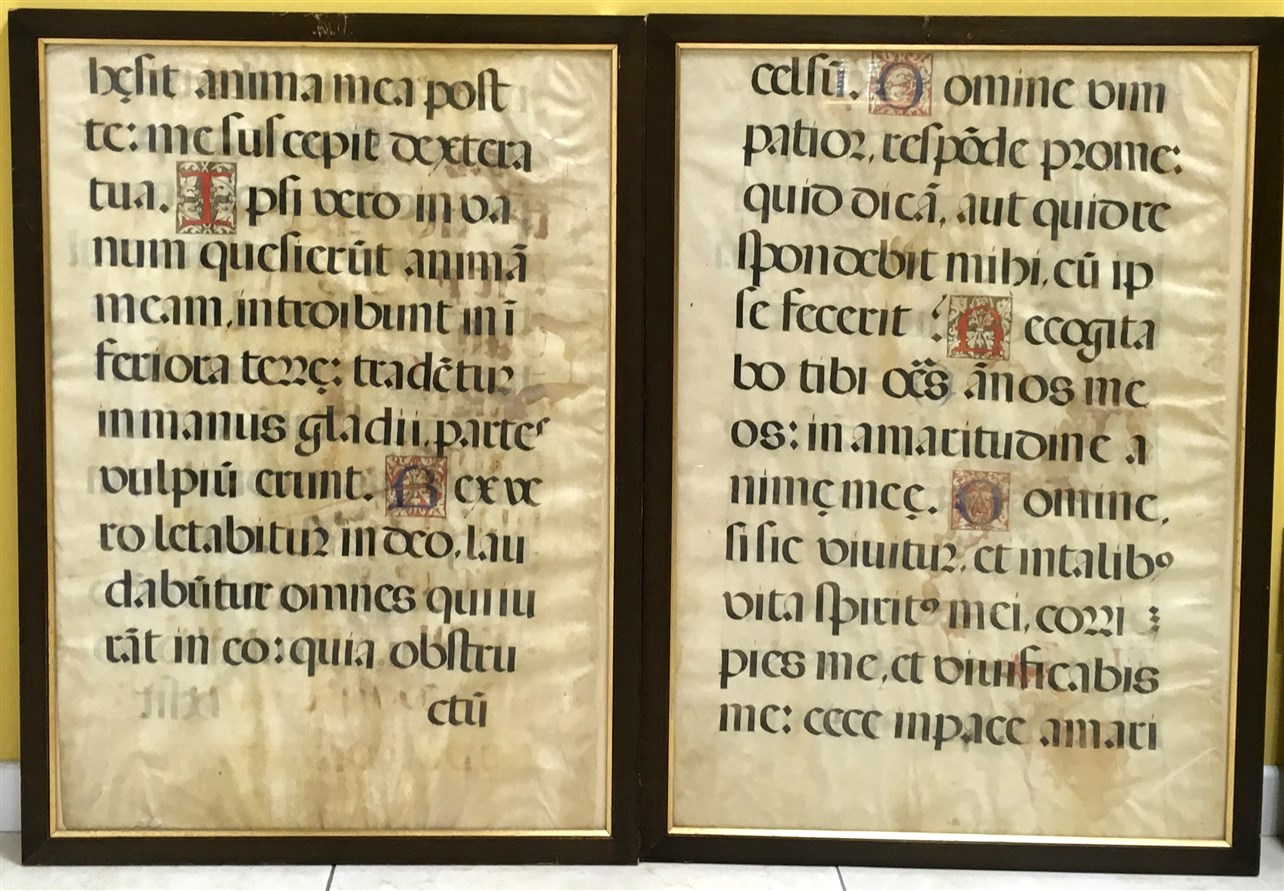 hęsit anima mea post
te: me suscepit dextera
tua. Ipsi vero in va
num quesierūt animā
meam, introibunt in ī
feriora terrę: tradētur
in manus gladii, partes
vulpiū erunt. Rex ve
ro letabitur in deo, lau
dabūtur omnes qui iu
rāt in eo: quia obstru
ctū
celsū. Domine vim
patior, respōde pro me:
quid dicā, aut quid re
spondebit mihi, cū ip
se fecerit : Recogita
bo tibi oēs ānos me
os: in amaritudine a
nimę meę. Domine,
si sic viuitur, et in talibꝰ
vita spiritꝰ mei, corri
pies me, et viuificabis
me: ecce in pace amari